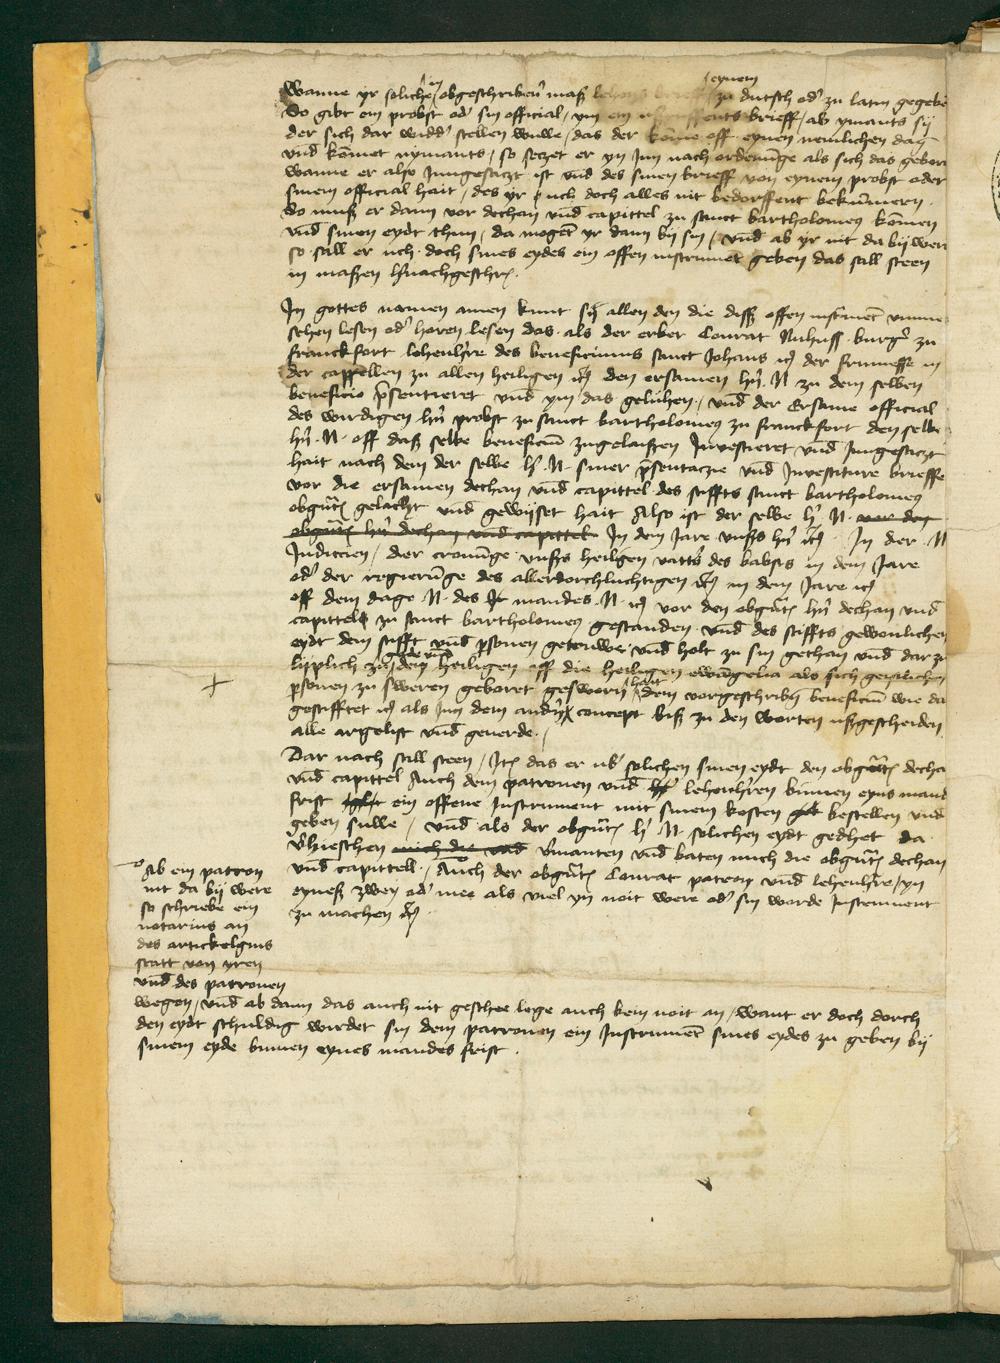 Wanne yr soliche in obgeschriben maß eynem zu dutsch od' zu latin gegebe
So gibt ein probst od' sin official / ym ein brieff / ab ymants sij
der sich dar widd' stellen wulle / das der kome off eynen nemlichen dag
vnd kommet nymants / so seczet er yn Inn nach ordenu̅ge als sich das gebort
wanne er also Inngesaczt ist vnd des sinen brieff von eynem probst oder
sinem official hait / des yr uch doch alles nit bedorffent bekummern
So muß er dann vor dechan vnd capittel zu sanct bartholomeus komen
vnd sinen eydt thun / da moget yr dann bij sin / vnd ab yr nit da bij weret
so sall er uch doch sines eydes ein offen instrumet geben das sall steen
in maßen hernachgeschr.
In gottes namen amen kunt sij allen den die diß offen instrumet vmme
sehen lesen od' horen lesen das als der erber Conrat Nuhuß burg' zu
Franckfort lehenh're des beneficiums sanct Johans ic der frumesse in
der cappellen zu allen heiligen ic den ersamen h'n N zu dem selben
beneficio p'sentieret vnd ym das geluhen / vnd der Ersame official
des wirdigen h'n probst zu sanct bartholomeus zu franckfort den selbe
h'n N off daß selbe beneficiu̅ zugelaißen Investieret vnd Inngesaczt
hait nach dem der selbe h' N siner p'sentacie vnd Investiture brieffe
vor die ersamen dechan vnd capittel des stiffts sanct bartholomeus
obgnt' gelacht vnd gewijset hait Also ist der selbe h' N vor den
obgnt' h'n dechan vnd capittel In dem Jare vnsers h'n ic In der N
Indiccien / der cronu̅ge vnsers heiligen vatters des babsts in dem Jare
od' der regieru̅ge des allerdorchluchtigen ic in dem Jare ic
off dem dage N des mandes N ic vor den obgnt' h'n dechan vnd
capittel zu sanct bartholomeus gestanden vnd des stiffts gewonlichen
eydt dem stifft vnd p'sonen getruwe vnd holt zu sin gethan vnd dar zu
liplich zu den heiligen off die heiligen ewangelia als sich geistlichen
p'sonen zu sweren geboret gesworn hait dem vorgeschriben beneficiu̅ wie da
gestifftet ic als Inn dem andern concept biß zu den worten ußgescheiden
alle argelist vnd geuerde /
Dar nach sall steen / Ite das er ub' solichen sinen eydt den obgnt' decha
vnd capittel Auch dem patronen vnd lehenh'ren bynnen eyns mand
frist ein offene Instrument mit sinem kosten bestellen vnd
geben sulle / vnd als der obgnt' h' N solichen eydt gedhet da
v'hieschen mich die vnd v'manten vnd baten mich die obgnt' dechan
vnd capittell / Auch der obgnt' Conrat patron vnd lehenh're / yn
eyneß zwey od' mee als viel yn noit were od' sin worde Instrument
zu machen ic
Ab ein patron
nit da bij were
so schriebe ein
notarius an
des artickelgins
statt von yren
vnd des patronen
wegen / vnd ab dann das auch nit geschee lege auch kein noit an / want er doch dorch
den eydt schuldig wirdet sin dem patronen ein Instrumet sines eydes zu geben bij
sinem eyde bynnen eynes mandes frist .